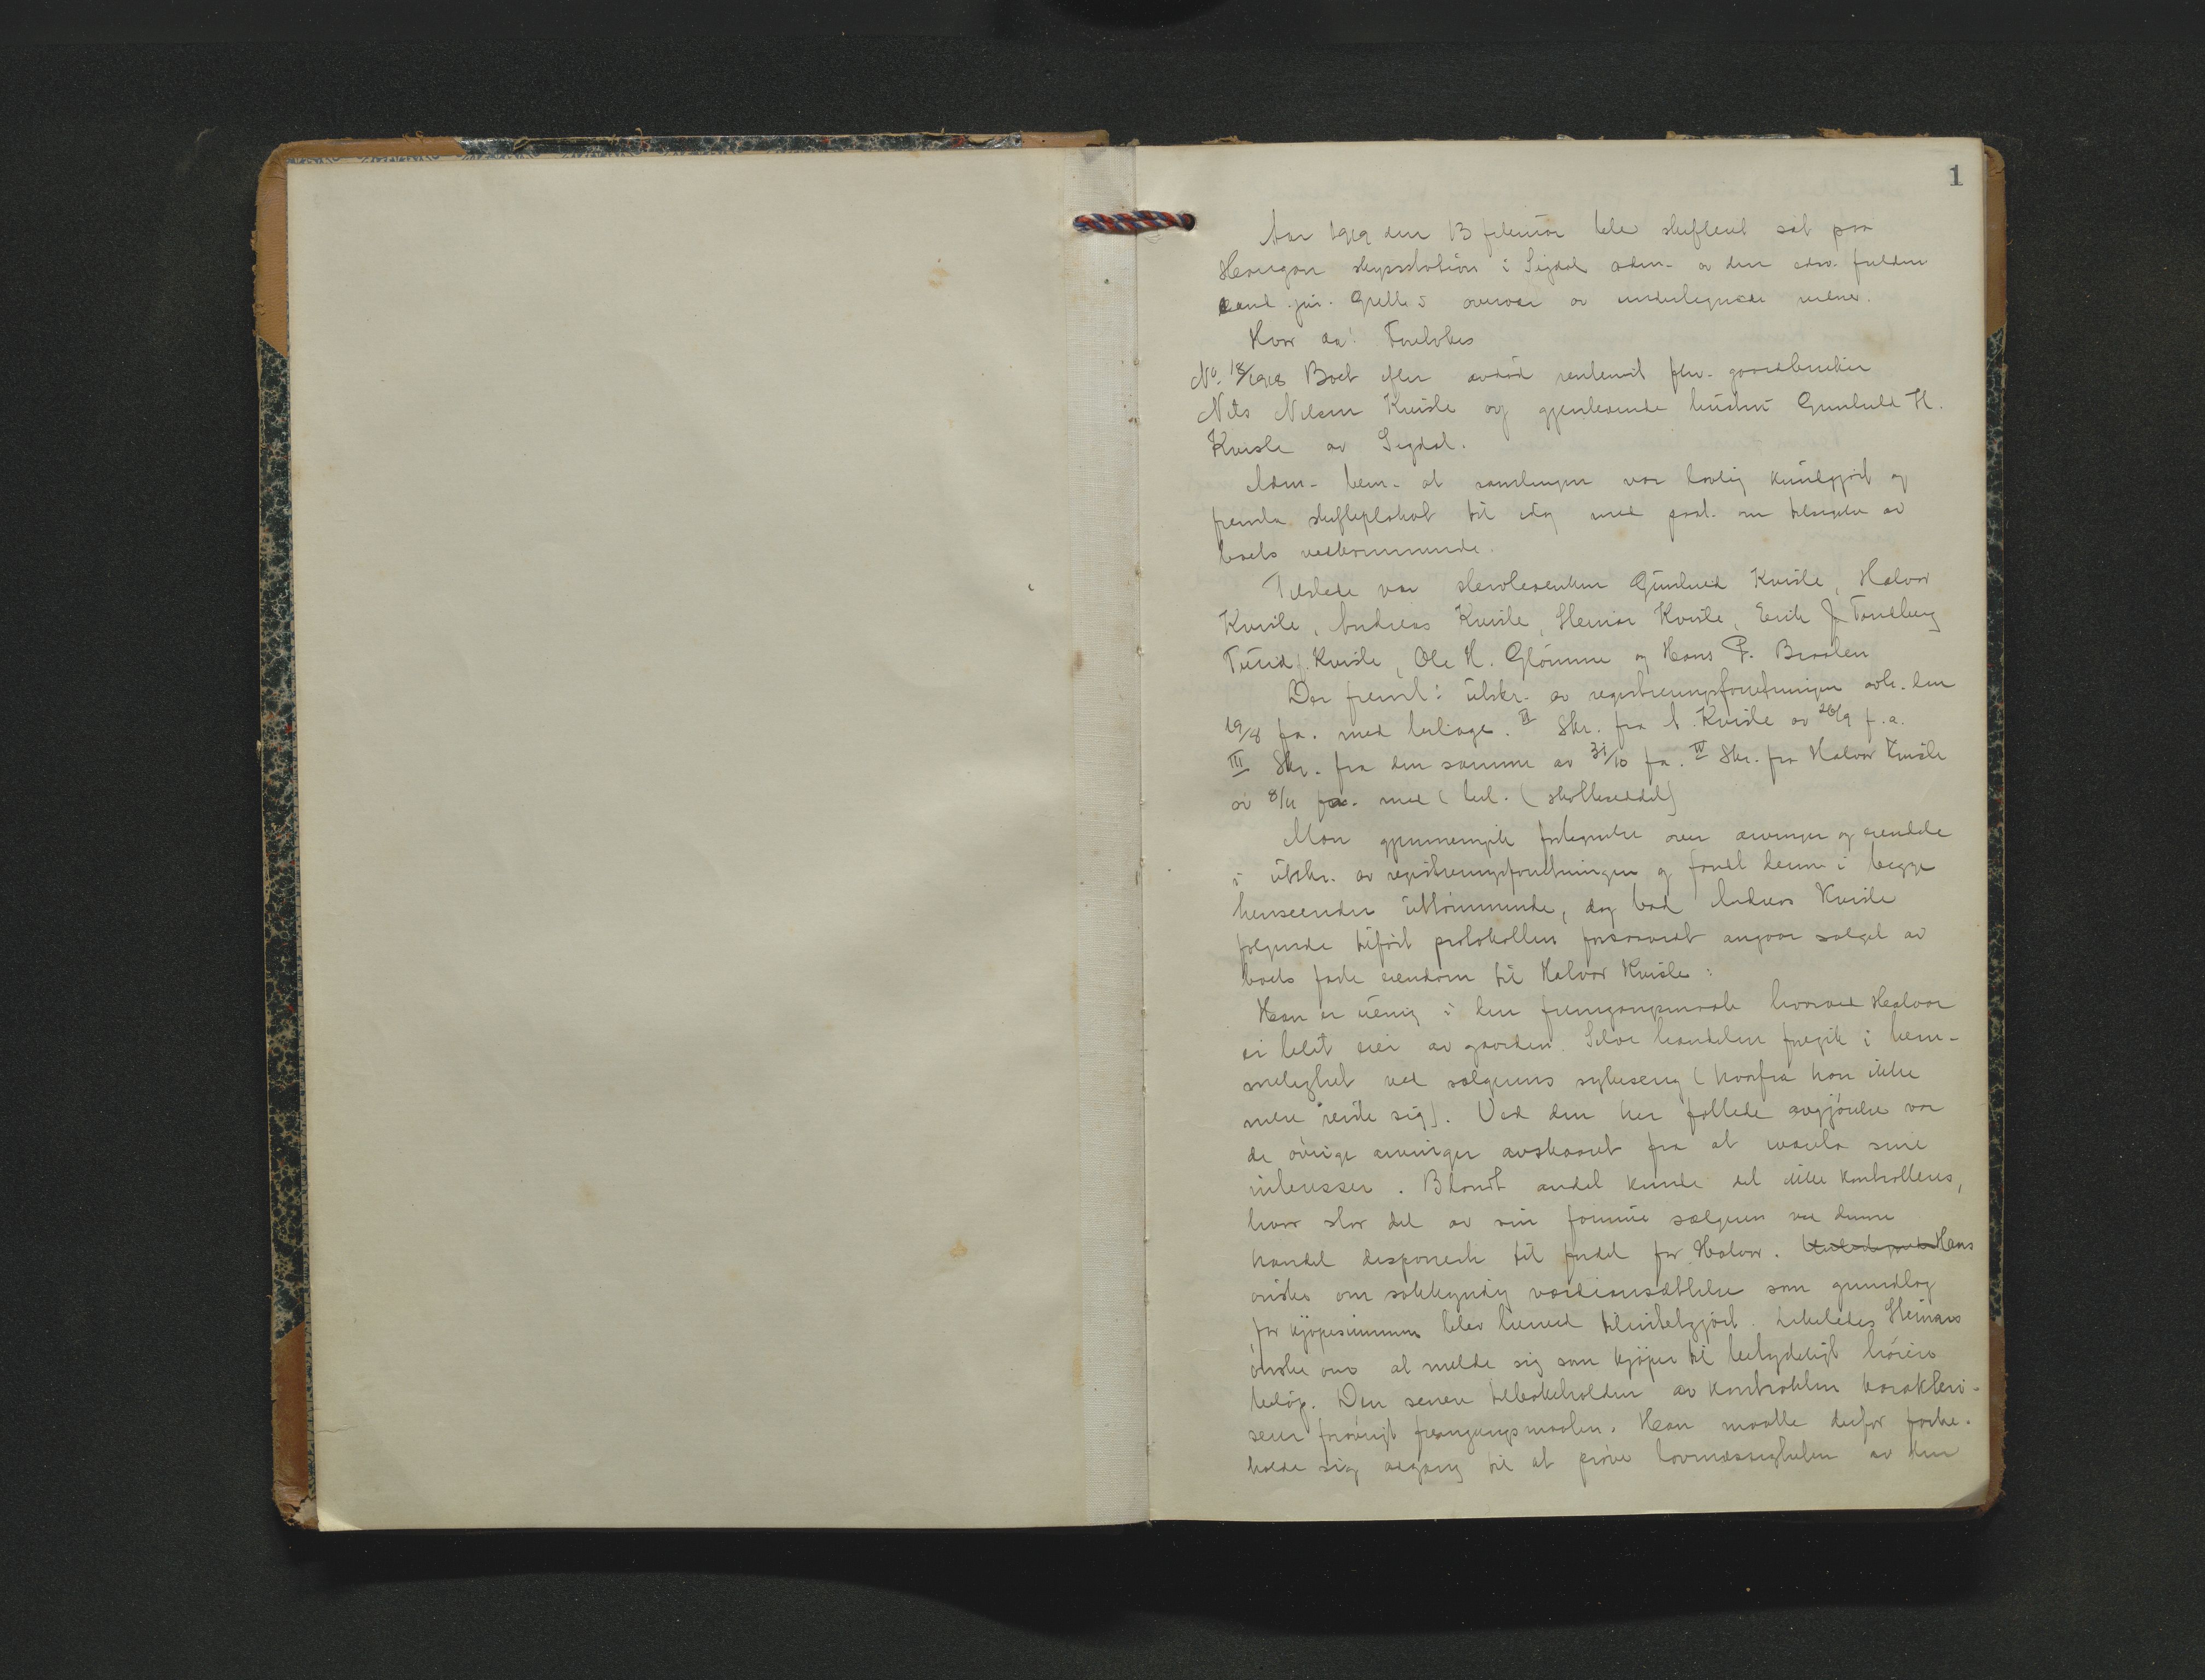 1
Aar 1919 den 13 februar blev skifteret sat paa
Haugan skysstation i Sigdal adm- av den edsv. fuldm
cand. jur. Grelle i overvær av undertegnede vidner.
Hvor da: Foretokes
No. 18/1918 Boet efter avdød rentenist fhv- gaardbruker
Nils Nilsen Kvisle og gjenlevende hustru Gunhild H.
Kvisle av Sigdal.
Adm- bem- at samlingen var lovlig kundgjort og
fremla skifteplakat til idag med paat. om tilsigelse av
boets vedkommende.
Tilstede var sterboenken Gunhild Kvisle, Halvor
Kvisle, Andreas Kvisle, Steinar Kvisle, Erik J. Tandberg
Turid J. Kvisle, Ole H. Glømme og Hans P. Braaten
Der freml: utskr. av registreringsforretningen avh. den
19/8 f.a. med bilage. II Skr. fra A. Kvisle av 26/9 f.a.
III Skr. fra den samme av 31/10 f.a. IV Skr. fra Halvor Kvisle
av 8/11 f.a. med 1 bil. (skatteseddel)
Man gjennemgik fortegnelse over arvinger og eiendele
i utskr. av registreringsforretningen og fandt denne i begge
henseender uttømmende, dog bad Andreas Kvisle
følgende tilført protokollen forsaavidt angaar salget av
boets faste eiendom til Halvor Kvisle:
Han er uenig i den fremgangsmaate hvorved Halvor
er blit eier av gaarden. Selve handelen foregik i hem-
melighet ved sælgerens sykeseng (hvorfra han ikke
mere reiste sig). Ved den her fattede avgjørelse var
de øvrige arvinger avskaaret fra at ivareta sine
interesser. Blandt andet kunde det ikke kontrolleres,
hvor stor del av sin formue sælgeren ved denne
handel disponerte til fordel for Halvor. Hans
ønske om sakkyndig værdiansættelse som grundlag
for kjøpesummen blev herved tilintetgjort. Likeledes Steinars
ønske om at melde sig som kjøper til betydeligt høiere
beløp. Den senere tilbakeholden av kontrakten karakteri-
serer forøvrigt fremgangsmaaten. Han maatte derfor forbe-
holde sig adgang til at prøve lovmæssigheten av den